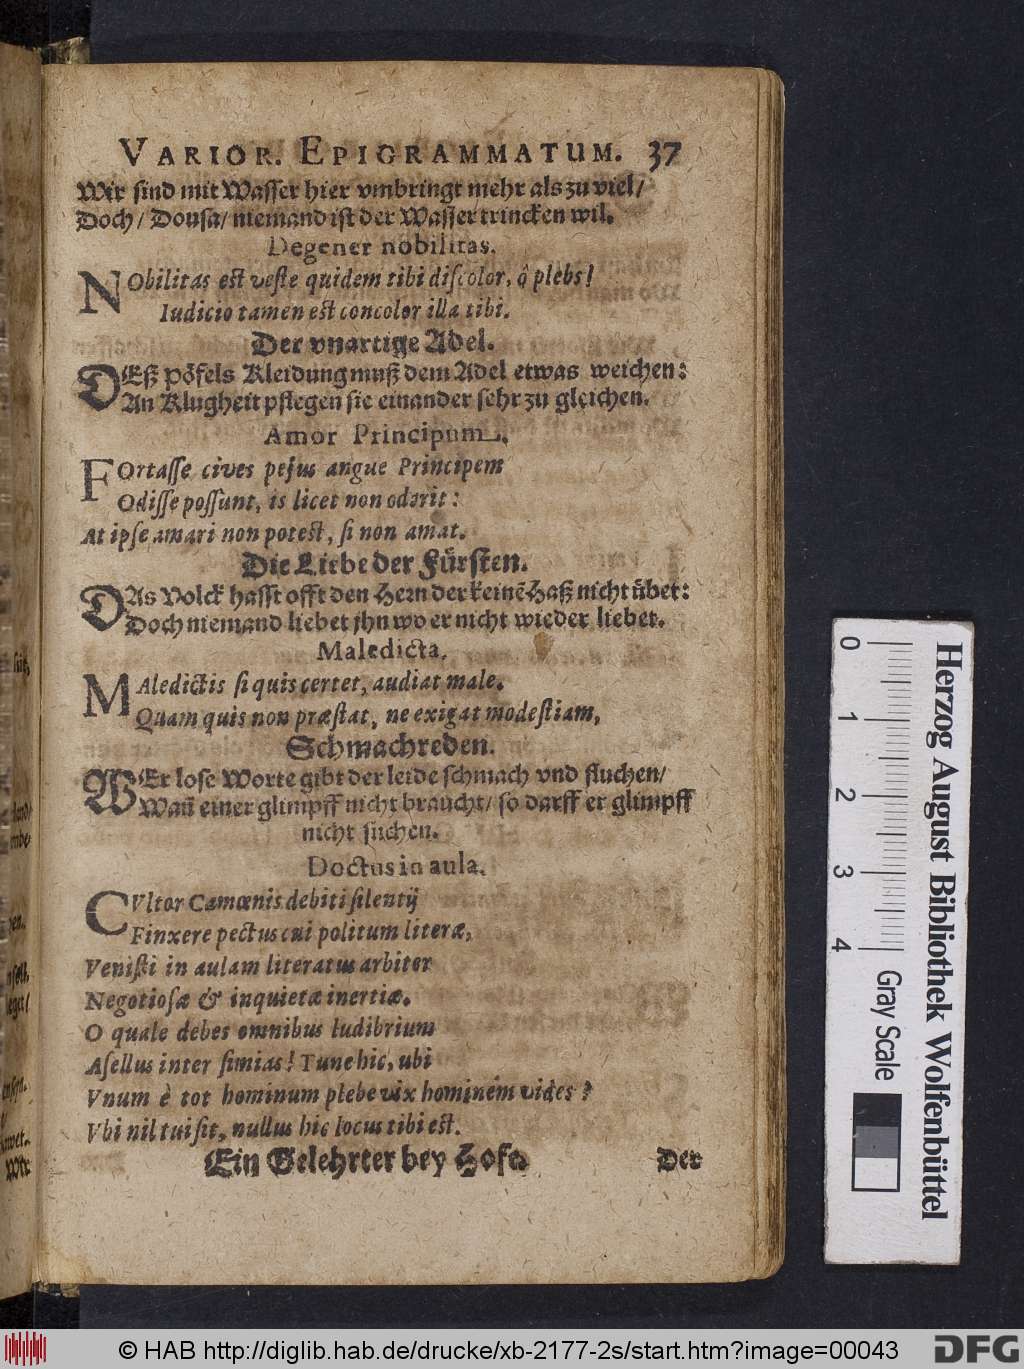 VARIOR. EPIGRAMMATUM. 37
Wir sind mit Wasser hier vmbringt mehr als zu viel/
Doch/ Dousa/ niemand ist der Wasser trincken wil.
Degener nobilitas.
NObilitas est veste quidem tibi discolor, ô plebs!
Iudicio tamen est concolor illa tibi.
Der vnartige Adel.
DEß pöfels Kleidung muß dem Adel etwas weichen:
An Klugheit pflegen sie einander sehr zu gleichen.
Amor Principum.
FOrtasse cives pejus angue Principem
Odisse possunt, is licet non oderit:
At ipse amari non potest, si non amat.
Die Liebe der Fürsten.
DAs Volck hasst offt den Hern der keinẽ Haß nicht übet:
Doch niemand liebet jhn wo er nicht wieder liebet.
Maledicta.
MAledictis si quis certet, audiat male.
Quam quis non præstat, ne exigat modestiam,
Schmachreden.
WEr lose Worte gibt der leide schmach vnd fluchen/
Wañ einer glimpff nicht braucht/ so darff er glimpff
nicht suchen.
Doctus in aula.
CVltor Camœnis debiti silentij
Finxere pectus cui politum literæ,
Venisti in aulam literatus arbiter
Negotiosæ & inquietæ inertiæ.
O quale debes omnibus ludibrium
Asellus inter simias! Tune hic, ubi
Vnum è tot hominum plebe vix hominem vides?
Vbi nil tui sit, nullus hic locus tibi est.
Ein Gelehrter bey Hofe
Der
0 1 2 3 4
Gray Scale
Herzog August Bibliothek Wolfenbüttel
© HAB http://diglib.hab.de/drucke/xb-2177-2s/start.htm?image=00043
DFG